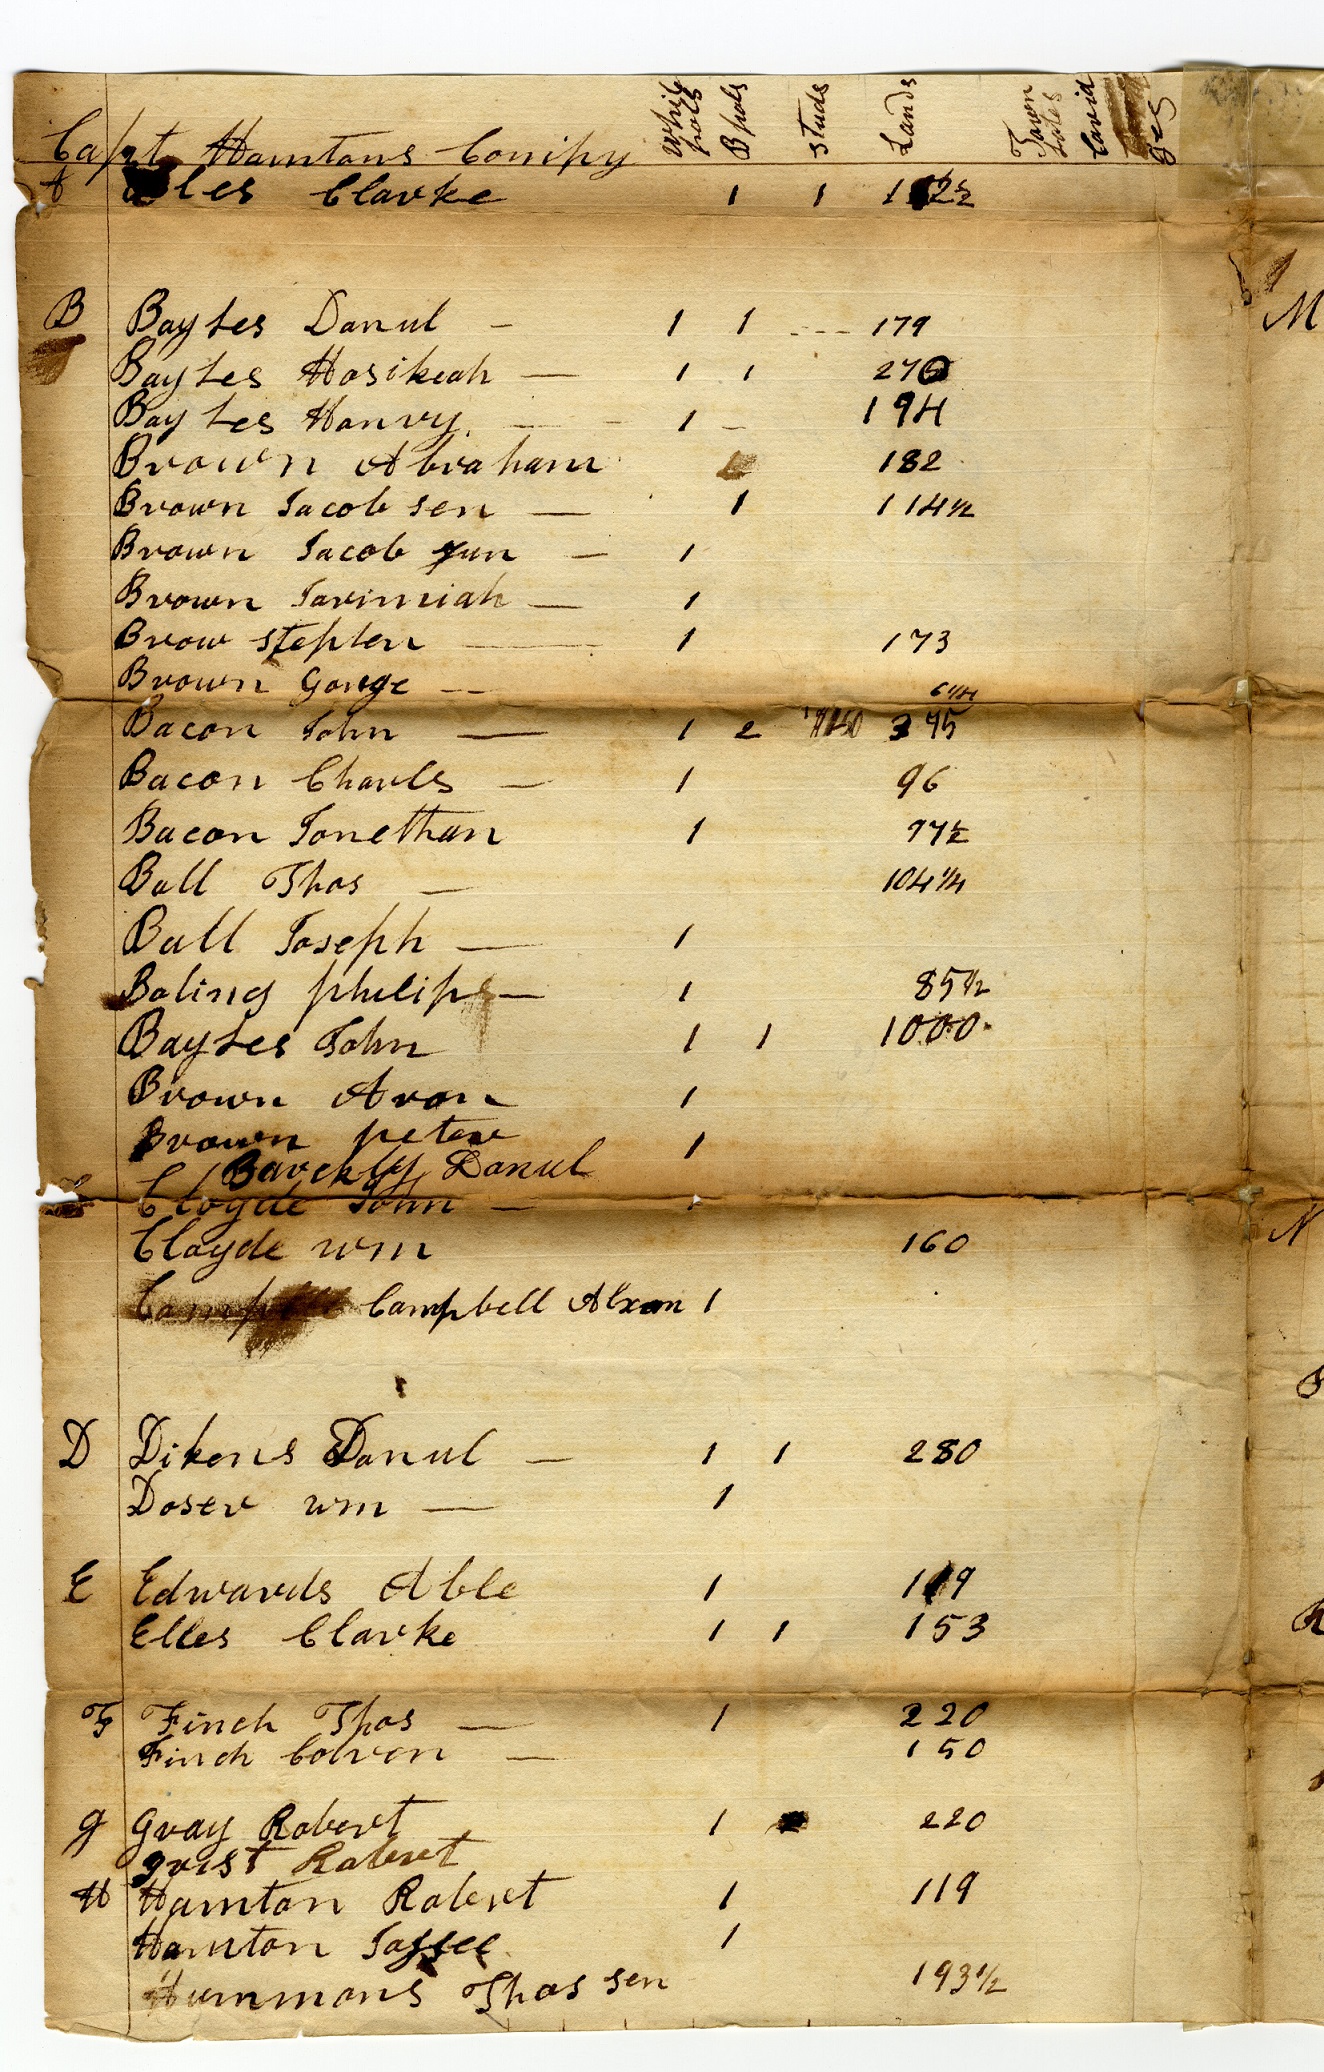 Capt Hamtons Compy White pols B pols studs Lands Town Lotes Covid ges
A les Clarke 1 1
B Bayles Danul - 1 1 ---- 179
Bayles Hosikeah — 1 1 270
Bayles Hanry. — - 1 - 194
Brown Abraham 182
Brown Jacob sen — 1 114 1/2
Brown Jacob jun — 1
Brown Jarimiah — 1
Brow stephen — 1 173
Brown Gorge -- 64 1/4
Bacon John — 1 2 395
Bacon Charles — 1 96
Bacon Jonethan 1 97 1/2
Ball Thos — 104 1/4
Ball Joseph — 1
Boling philips — 1 85 1/2
Bayles John 1 1 1000
Brown Aron 1
Brown peter 1
Barekly Danul
Cloyde John — 1
Cloyde wm 160
Campbell Campbell Alxan 1
D Dikens Danul — 1 1 280
Doser wm — 1
E Edwards Able 1 119
Elles Clarke 1 1 153
F Finch Thos — 1 220
Finch Colven — 150
g Gray Robert 1 220
grist Robert
H Hamton Robert 1 119
Hamton Jassee 1
Hummons Thos sen 193 1/2
M
N
R